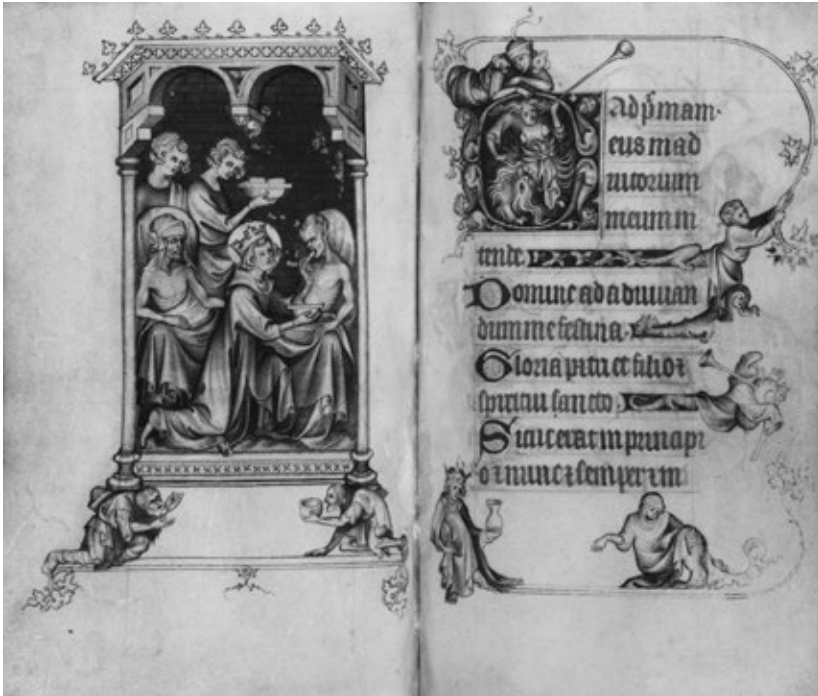 Ad p̄mam.
Deus in ad
iutorium
meum in
tende
Domine ad adiuuan
dum me festina.
Gloria pr̄i et filio ⁊
spiritui sancto.
Sicut erat in principi
o ⁊ nunc ⁊ semper ⁊ in